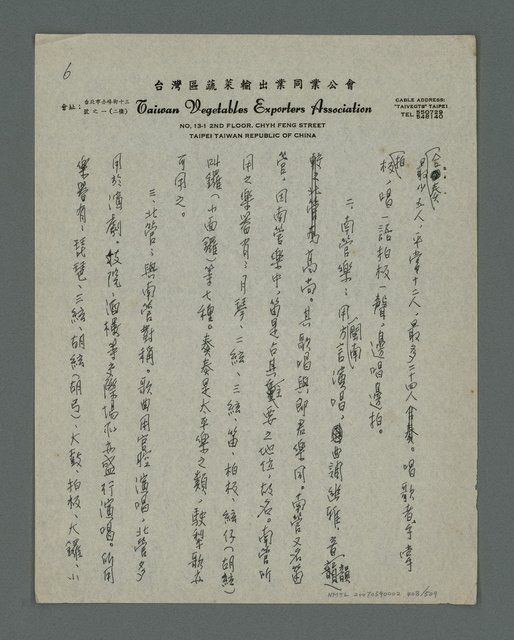 6
台灣區蔬菜輸出業同業公會
會址:台北市赤峰街十三號之一(二樓)
Taiwan Vegetables Exporters Association
NO. 13-1 2ND FLOOR. CHYH FENG STREET
TAIPEI TAIWAN REPUBLIC OF CHINA
CABLE ADDRESS:
"TAIVEGTS" TAIPEI
TEL 550729
548140
(合奏)最少五人,平常十二人,最多二十四人。唱歌者手掌
拍板,唱一語拍板一聲,邊唱邊拍。
二、南管樂:用閩南方言演唱,曲調雅,音韻
較之北管為高尚。其歌唱與郎君樂同。南管又名笛
管,因南管樂中,笛是占其重要之地位,故名。南管所
用之樂器有:月琴、二絃、三絃、笛、拍板、絃仔(胡絃)
叫鑼(小面鑼)等七種。奏奏是太平樂之類,駛犁歌亦
可用之。
三、北管:與南管對稱。歌曲用官腔演唱,北管多
用於演劇。妓院、酒樓等交際場所亦盛行演唱。所用
樂器有:琵琶、三絃、胡絃(胡弓)、大鼓、拍板、大鑼、小
NMTL 20070590002 408/509